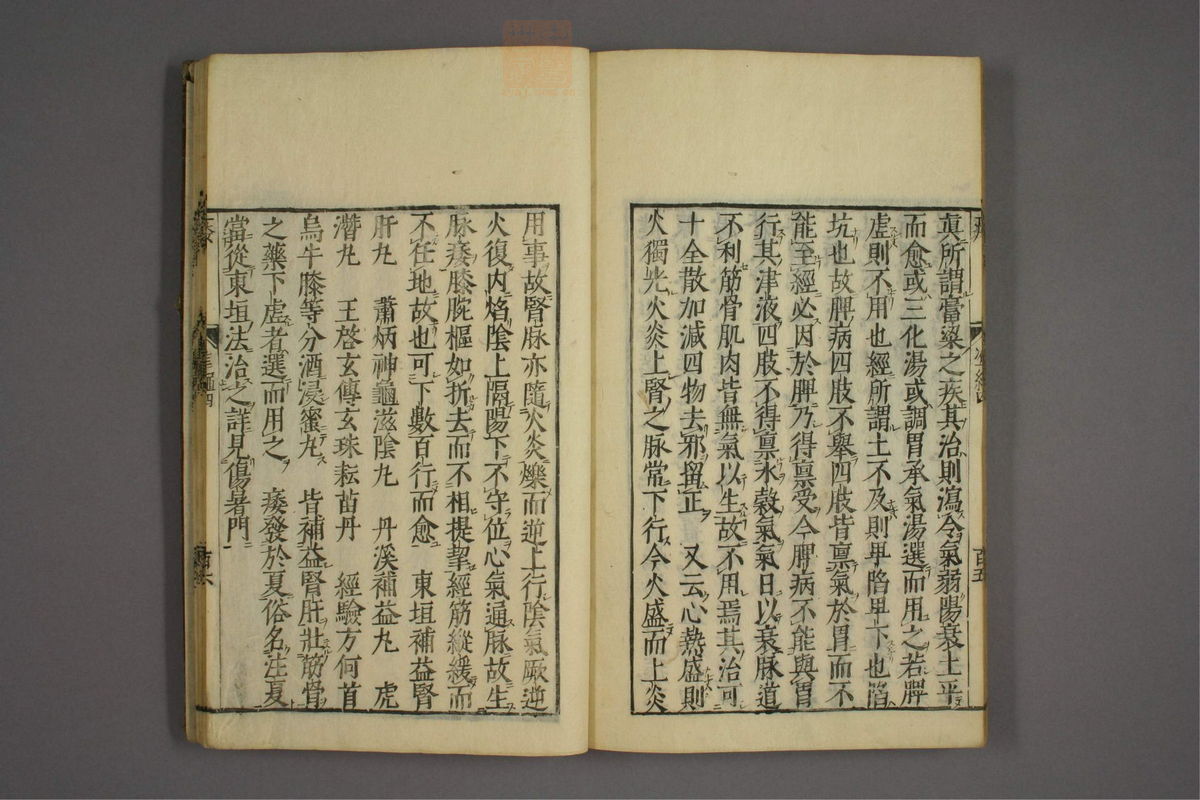 真所謂膏粱之疾其治則瀉令氣弱陽衰土平
而愈或三化湯或調胃承氣湯選而用之若脾
虛則不用也經所謂土不及則卑陷卑下也陷
坑也故脾病四肢不舉四肢皆禀氣於胃而不
能至經必因於脾乃得禀受今脾病不能與胃
行其津液四肢不得禀水穀氣氣日以衰脉道
不利筋骨肌肉皆無氣以生故不用焉其治可
十全散加減四物去邪留正　又云心熱盛則
火獨光火炎上腎之脉常下行今火盛而上炎
用事故腎脉亦隨火炎爍而逆上行陰氣厥逆
火復內焰陰上隔陽下不守位心氣通脉故生
脉痿膝腕樞如折去而不相提挈經筋縱緩而
不任地故也可下數百行而愈　東垣補益腎
肝丸　蕭炳神龜滋陰丸　丹溪補益丸　虎
潛丸　王啓玄傳玄珠耘苗丹　經驗方何首
烏牛膝等分酒浸蜜丸　皆補益腎肝壯筋骨
之藥下虛者選而用之　痿發於夏俗名注夏
當從東垣法治之詳見傷暑門
百五
百六